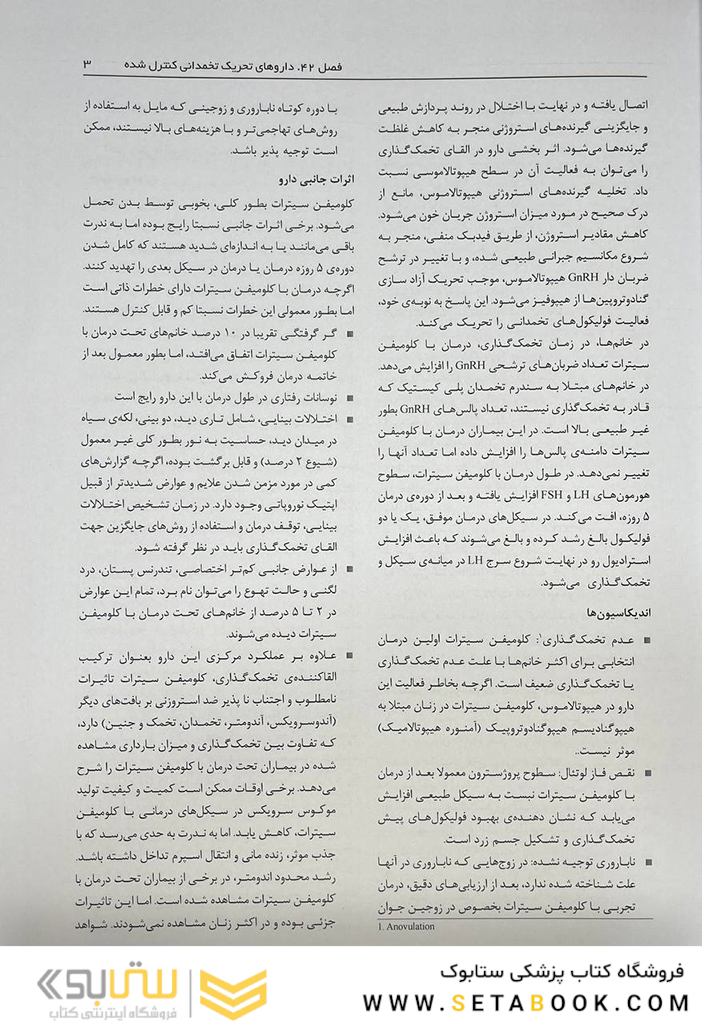 فصل ۴۲. داروهای تحریک تخمدانی کنترل شده ۳
اتصال یافته و در نهایت با اختلال در روند پردازش طبیعی
و جایگزینی گیرنده‌های استروژنی منجر به کاهش غلظت
گیرنده‌ها می‌شود. اثر بخشی دارو در القای تخمک‌گذاری
را می‌توان به فعالیت آن در سطح هیپوتالاموسی نسبت
داد. تخلیه گیرنده‌های استروژنی هیپوتالاموس، مانع از
درک صحیح در مورد میزان استروژن جریان خون می‌شود.
کاهش مقادیر استروژن، از طریق فیدبک منفی، منجر به
شروع مکانسیم جبرانی طبیعی شده، و با تغییر در ترشح
ضربان دار GnRH هیپوتالاموس، موجب تحریک آزاد سازی
گنادوتروپین‌ها از هیپوفیز می‌شود. این پاسخ به نوبه‌ی خود،
فعالیت فولیکول‌های تخمدانی را تحریک می‌کند.
در خانم‌ها، در زمان تخمک‌گذاری، درمان با کلومیفن
سیترات تعداد ضربان‌های ترشحی GnRH را افزایش می‌دهد.
در خانم‌های مبتلا به سندرم تخمدان پلی کیستیک که
قادر به تخمک‌گذاری نیستند، تعداد پالس‌های GnRH بطور
غیر طبیعی بالا است. در این بیماران درمان با کلومیفن
سیترات دامنه‌ی پالس‌ها را افزایش داده اما تعداد آنها را
تغییر نمی‌دهد. در طول درمان با کلومیفن سیترات، سطوح
هورمون‌های LH و FSH افزایش یافته و بعد از دوره‌ی درمان
۵ روزه، افت می‌کند. در سیکل‌های درمان موفق، یک یا دو
فولیکول بالغ رشد کرده و بالغ می‌شوند که باعث افزایش
استرادیول رو در نهایت شروع سرج LH در میانه‌ی سیکل و
تخمک‌گذاری می‌شود.
اندیکاسیون‌ها
■ عدم تخمک‌گذاری¹: کلومیفن سیترات اولین درمان
انتخابی برای اکثر خانم‌ها با علت عدم تخمک‌گذاری
یا تخمک‌گذاری ضعیف است. اگرچه بخاطر فعالیت این
دارو در هیپوتالاموس، کلومیفن سیترات در زنان مبتلا به
هیپوگنادیسم هیپوگنادوتروپیک (آمنوره هیپوتالامیک)
موثر نیست..
■ نقص فاز لوتئال: سطوح پروژسترون معمولا بعد از درمان
با کلومیفن سیترات نبست به سیکل طبیعی افزایش
می‌یابد که نشان دهنده‌ی بهبود فولیکول‌های پیش
تخمک‌گذاری و تشکیل جسم زرد است.
■ ناباروری توجیه نشده: در زوج‌هایی که ناباروری در آنها
علت شناخته شده ندارد، بعد از ارزیابی‌های دقیق، درمان
تجربی با کلومیفن سیترات بخصوص در زوجین جوان
1. Anovulation
با دوره کوتاه ناباروری و زوجینی که مایل به استفاده از
روش‌های تهاجمی‌تر و با هزینه‌های بالا نیستند، ممکن
است توجیه پذیر باشد.
اثرات جانبی دارو
کلومیفن سیترات بطور کلی، بخوبی توسط بدن تحمل
می‌شود. برخی اثرات جانبی نسبتا رایج بوده اما به ندرت
باقی می‌مانند یا به اندازه‌ای شدید هستند که کامل شدن
دوره‌ی ۵ روزه درمان یا درمان در سیکل بعدی را تهدید کنند.
اگرچه درمان با کلومیفن سیترات دارای خطرات ذاتی است
اما بطور معمولی این خطرات نسبتا کم و قابل کنترل هستند.
■ گر گرفتگی تقریبا در ۱۰ درصد خانم‌های تحت درمان با
کلومیفن سیترات اتفاق می‌افتد، اما بطور معمول بعد از
خاتمه درمان فروکش می‌کند.
■ نوسانات رفتاری در طول درمان با این دارو رایج است
■ اختلالات بینایی، شامل تاری دید، دو بینی، لکه‌ی سیاه
در میدان دید، حساسیت به نور بطور کلی غیر معمول
(شیوع ۲ درصد) و قابل برگشت بوده، اگرچه گزارش‌های
کمی در مورد مزمن شدن علایم و عوارض شدیدتر از قبیل
اپتیک نوروپاتی وجود دارد. در زمان تشخیص اختلالات
بینایی، توقف درمان و استفاده از روش‌های جایگزین جهت
القای تخمک‌گذاری باید در نظر گرفته شود.
■ از عوارض جانبی کم‌تر اختصاصی، تندرنس پستان، درد
لگنی و حالت تهوع را می‌توان نام برد، تمام این عوارض
در ۲ تا ۵ درصد از خانم‌های تحت درمان با کلومیفن
سیترات دیده می‌شوند.
■ علاوه بر عملکرد مرکزی این دارو بعنوان ترکیب
القاکننده‌ی تخمک‌گذاری، کلومیفن سیترات تاثیرات
نامطلوب و اجتناب نا پذیر ضد استروزنی بر بافت‌های دیگر
(آندوسرویکس، آندومتر، تخمدان، تخمک و جنین) دارد،
که تفاوت بین تخمک‌گذاری و میزان بارداری مشاهده
شده در بیماران تحت درمان با کلومیفن سیترات را شرح
می‌دهد. برخی اوقات ممکن است کمیت و کیفیت تولید
موکوس سرویکس در سیکل‌های درمانی با کلومیفن
سیترات، کاهش یابد. اما به ندرت به حدی می‌رسد که با
جذب موثر، زنده مانی و انتقال اسپرم تداخل داشته باشد.
رشد محدود اندومتر، در برخی از بیماران تحت درمان با
کلومیفن سیترات مشاهده شده است. اما این تاثیرات
جزئی بوده و در اکثر زنان مشاهده نمی‌شودند. شواهد
فروشگاه کتاب پزشکی ستابوک
WWW.SETABOOK.COM
ستابوک
فروشگاه اینترنتی کتاب